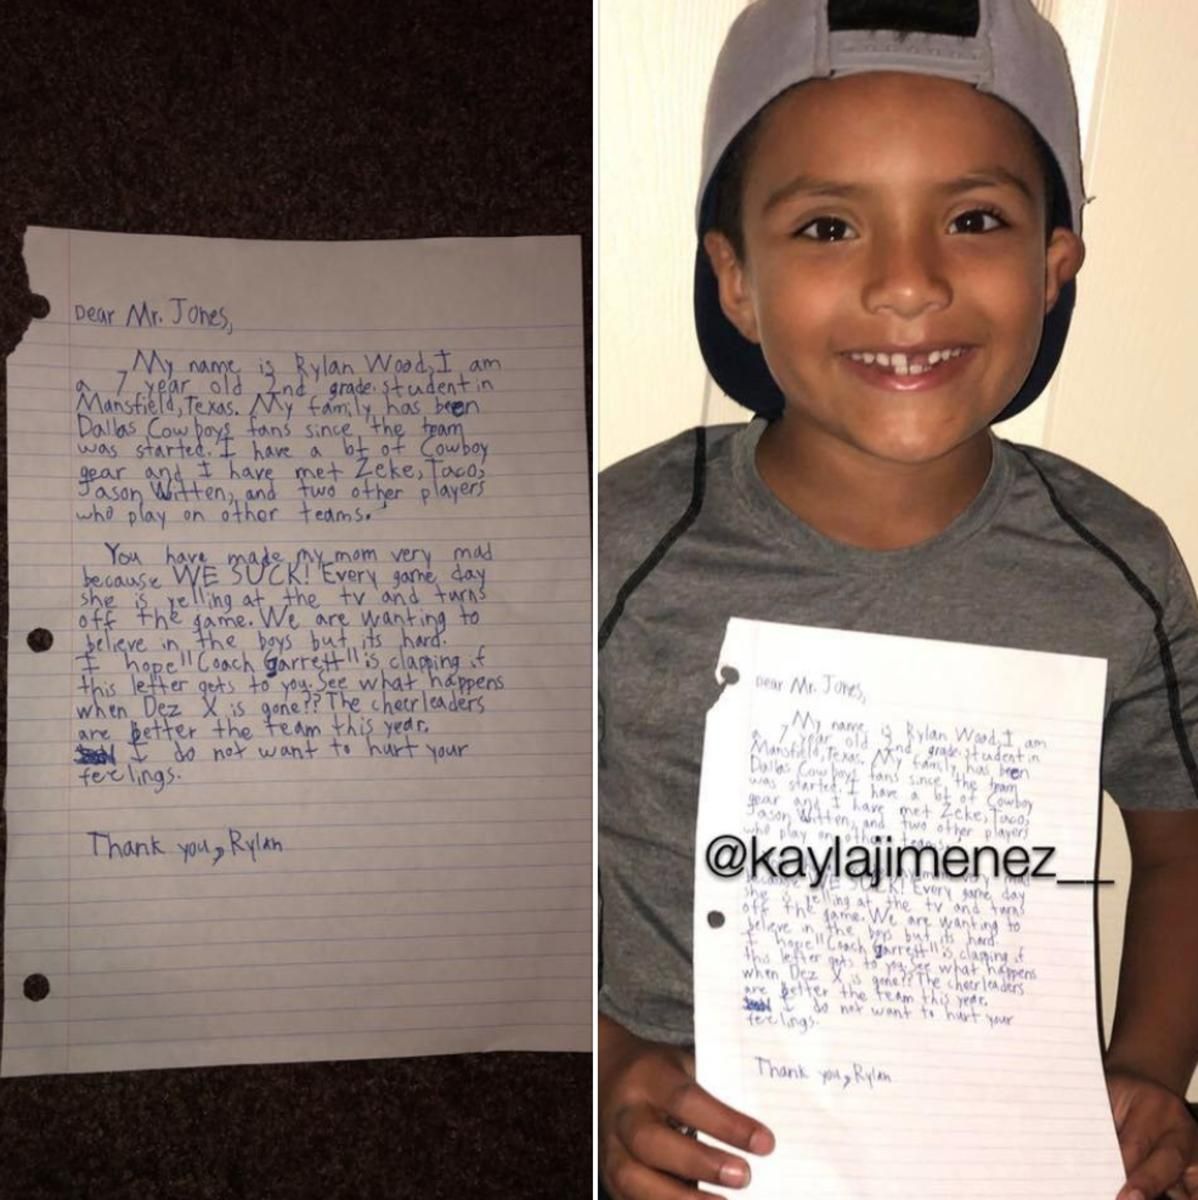 Dear Mr. Jones,
My name is Rylan Wood, I am
a 7 year old 2nd grade student in
Mansfield, Texas. My family has been
Dallas Cowboys fans since the team
was started. I have a lot of Cowboy
gear and I have met Zeke, Taco,
Jason Witten, and two other players
who play on other teams.
You have made my mom very mad
because WE SUCK! Every game day
she is yelling at the tv and turns
off the game. We are wanting to
believe in the boys but its hard.
I hope "Coach Garrett" is clapping if
this letter gets to you. See what happens
when Dez X is gone?? The cheerleaders
are better the team this year.
I do not want to hurt your
feelings.
Thank you, Rylan
Dear Mr. Jones,
My name is Rylan Wood, I am
a 7 year old 2nd grade student in
Mansfield, Texas. My family has been
Dallas Cowboys fans since the team
was started. I have a lot of Cowboy
gear and I have met Zeke, Taco,
Jason Witten, and two other players
who play on other teams.
@kaylajimenez__
because WE SUCK! Every game day
she is yelling at the tv and turns
off the game. We are wanting to
believe in the boys but its hard.
I hope "Coach Garrett" is clapping if
this letter gets to you. See what happens
when Dez X is gone?? The cheerleaders
are better the team this year.
I do not want to hurt your
feelings.
Thank you, Rylan